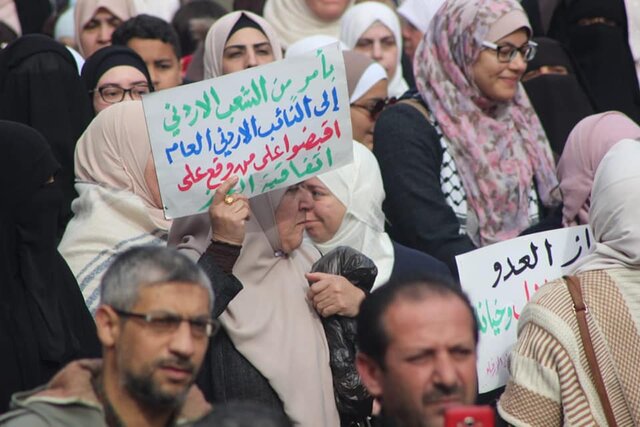 بأمر من الشعب الاردني
إلى النائب الاردني العام
اقبضوا على من وقع على
اتفاقية
از العدو
وخيانة